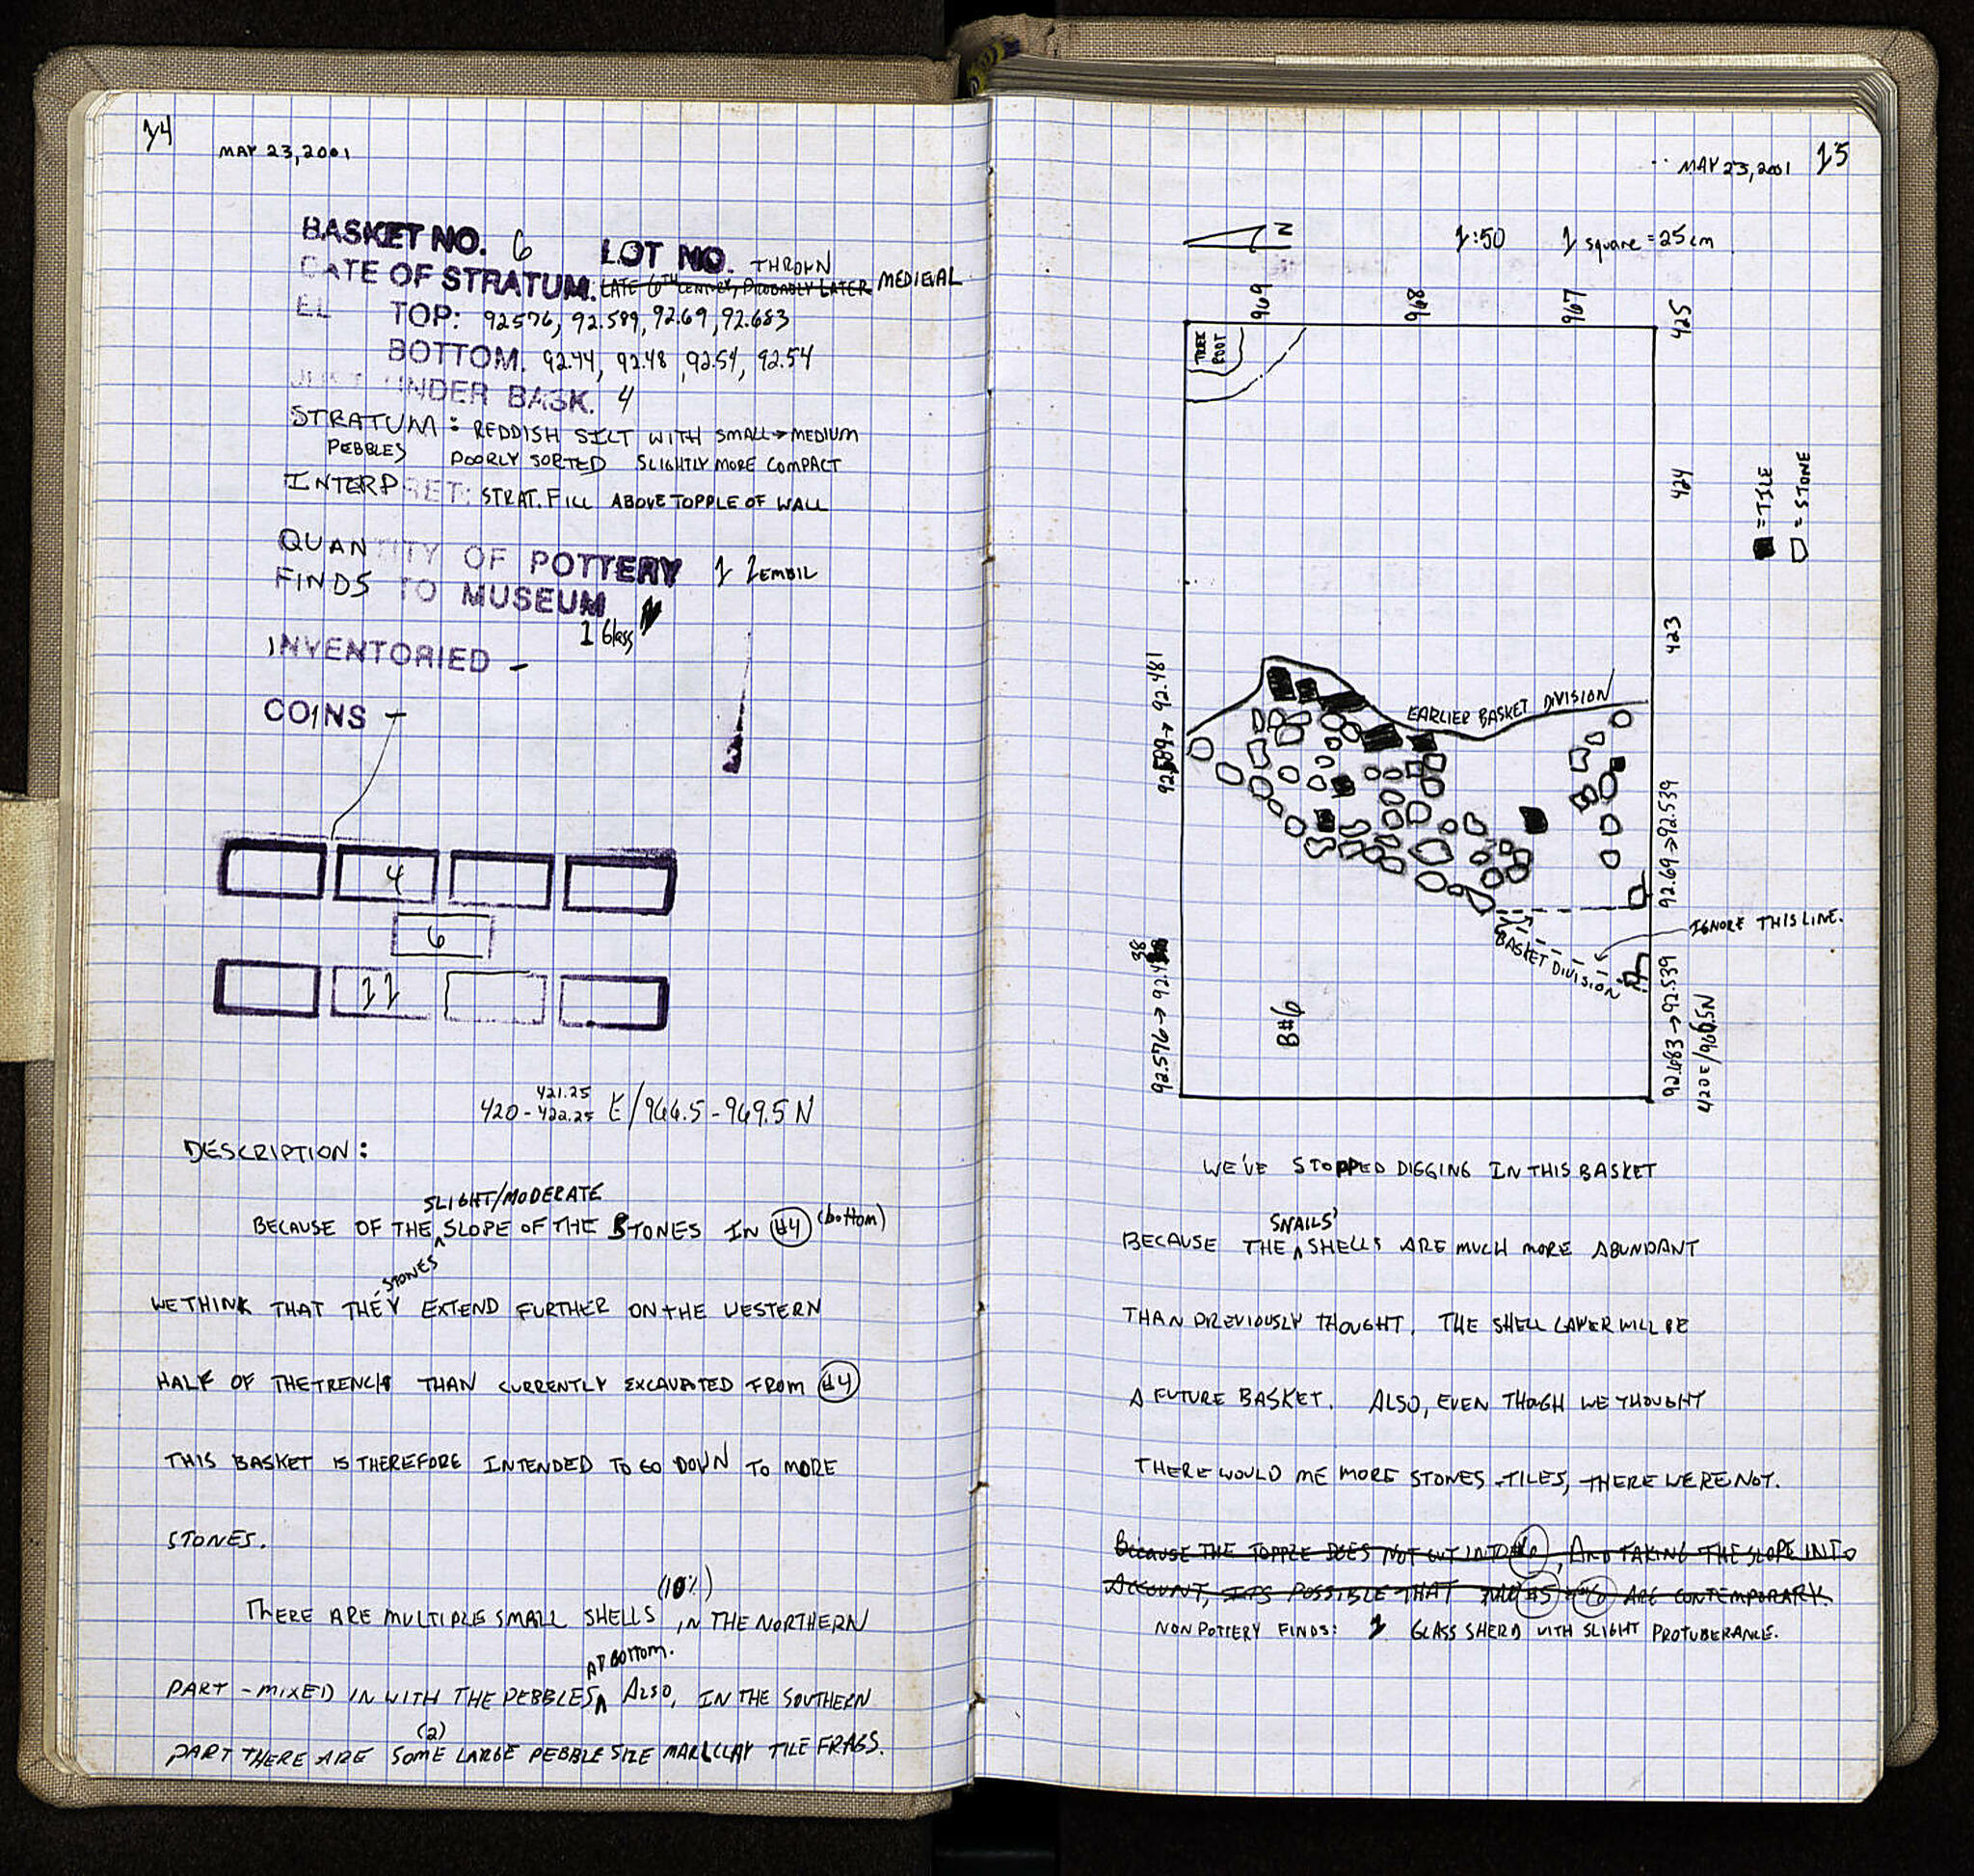 14
MAY 23, 2001
BASKET NO. 6 LOT NO. THROWN
DATE OF STRATUM. LATE 6TH CENTURY, PROBABLY LATER MEDIEVAL
EL TOP: 92.576, 92.589, 92.69, 92.683
BOTTOM. 92.44, 92.48, 92.54, 92.54
JUST UNDER BASK. 4
STRATUM: REDDISH SILT WITH SMALL → MEDIUM
PEBBLES POORLY SORTED SLIGHTLY MORE COMPACT
INTERPRET: STRAT. FILL ABOVE TOPPLE OF WALL
QUANTITY OF POTTERY 1 ZEMBIL
FINDS TO MUSEUM
1 Glass
INVENTORIED -
COINS -
4
6
11
421.25
420 - 422.25 E/966.5 - 969.5 N
DESCRIPTION:
SLIGHT/MODERATE
BECAUSE OF THE ^ SLOPE OF THE STONES IN #4 (bottom)
STONES
WE THINK THAT THEY EXTEND FURTHER ON THE WESTERN
HALF OF THE TRENCH THAN CURRENTLY EXCAVATED FROM #4
THIS BASKET IS THEREFORE INTENDED TO GO DOWN TO MORE
STONES.
(10%)
THERE ARE MULTIPLE SMALL SHELLS IN THE NORTHERN
AT BOTTOM.
PART - MIXED IN WITH THE PEBBLES ^ ALSO, IN THE SOUTHERN
(2)
PART THERE ARE SOME LARGE PEBBLE SIZE MARL CLAY TILE FRAGS.
MAY 23, 2001 15
N
1:50 1 square = 25 cm
969
968
967
425
424
423
TREE ROOT
■ = TILE
= STONE
92.589 → 92.481
EARLIER BASKET DIVISION
92.69 → 92.539
IGNORE THIS LINE.
BASKET DIVISION
38
92.576 → 92.4
B#6
92.683 → 92.539
420E/966.5N
WE'VE STOPPED DIGGING IN THIS BASKET
SNAILS'
BECAUSE THE ^ SHELLS ARE MUCH MORE ABUNDANT
THAN PREVIOUSLY THOUGHT. THE SHELL LAYER WILL BE
A FUTURE BASKET. ALSO, EVEN THOUGH WE THOUGHT
THERE WOULD ME MORE STONES + TILES, THERE WERE NOT.
BECAUSE THE TOPPLE DOES NOT CUT INTO #6, AND TAKING THE SLOPE INTO
ACCOUNT, ITS POSSIBLE THAT #5 + #6 ARE CONTEMPORARY.
NON POTTERY FINDS: 1 GLASS SHERD WITH SLIGHT PROTUBERANCE.